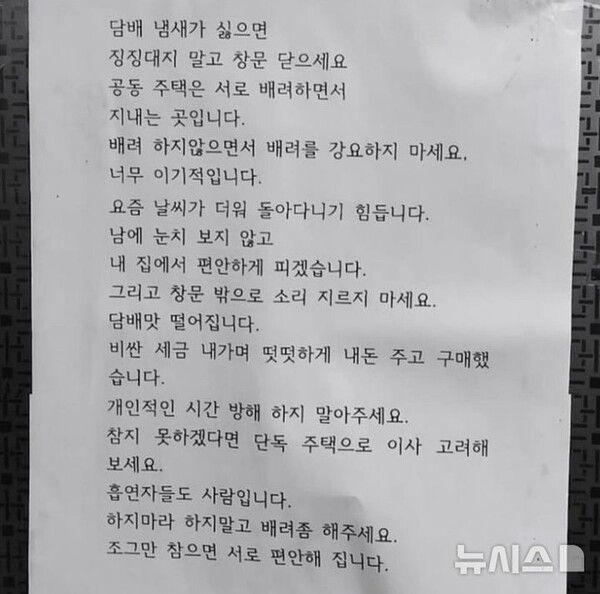 담배 냄새가 싫으면
징징대지 말고 창문 닫으세요
공동 주택은 서로 배려하면서
지내는 곳입니다.
배려 하지않으면서 배려를 강요하지 마세요.
너무 이기적입니다.
요즘 날씨가 더워 돌아다니기 힘듭니다.
남에 눈치 보지 않고
내 집에서 편안하게 피겠습니다.
그리고 창문 밖으로 소리 지르지 마세요.
담배맛 떨어집니다.
비싼 세금 내가며 떳떳하게 내돈 주고 구매했
습니다.
개인적인 시간 방해 하지 말아주세요.
참지 못하겠다면 단독 주택으로 이사 고려해
보세요.
흡연자들도 사람입니다.
하지마라 하지말고 배려좀 해주세요.
조그만 참으면 서로 편안해 집니다.
뉴시스